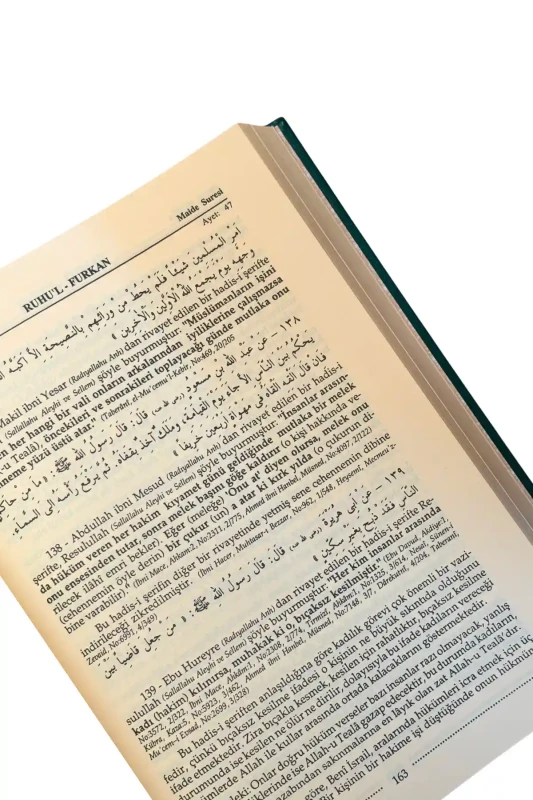 RUHU'L - FURKAN
Maide Suresi
Ayet: 47
أمر المسلمين شيئا فلم يحط من ورائهم بالنصيحة إلا أكبه الله
وجهه يوم يجمع الله الأولين والآخرين
Makil ibni Yesar (Radıyallahu Anh) dan rivayet edilen bir hadis-i şerifte
(Sallallahu Aleyhi ve Sellem) şöyle buyurmuştur: "Müslümanların işini
en her hangi bir vali onların arkalarından iyiliklerine çalışmazsa
-u Teâlâ), öncekileri ve sonrakileri toplayacağı günde mutlaka onu
neme yüzü üstü atar." (Taberânî, el-Mu'cemu'l-Kebir, No:469, 20/205
١٣٨ - عن عبد الله بن مسعود قال: قال رسول الله ﷺ « ما من حاكم
يحكم بين الناس إلا جاء يوم القيامة وملك آخذ بقفاه، ثم يرفع رأسه إلى السماء،
فإن قال ألقه ألقاه في مهواة أربعين خريفا »
138 - Abdullah ibni Mesud (Radıyallahu Anh) dan rivayet edilen bir hadis-i
şerifte, Resulullah (Sallallahu Aleyhi ve Sellem) şöyle buyurmuştur: "İnsanlar arasın-
da hüküm veren her hakim kıyamet günü geldiğinde mutlaka bir melek
onu ensesinden tutar, sonra melek başını göğe kaldırır (o kişi hakkında ve-
rilecek ilâhî emri bekler). Eğer (meleğe) "Onu at" diyen olursa, melek onu
(cehennemin öyle derin) bir çukur (un) a atar ki kırk yılda (o çukurun di-
bine varabilir)." (İbni Mace, Ahkam:2, No:2311, 2/775, Ahmed ibni Hanbel, Müsned, No:4097, 2/132)
Bu hadis-i şerifin diğer bir rivayetinde yetmiş sene cehennemin dibine
indirileceği zikredilmiştir. (İbni Hacer, Muhtasar-ı Bezzar, No:962, 1/548, Heysemî, Mecmeu'z-
Zevaid, No:6991, 4/349)
١٣٩ - عن أبي هريرة قال: قال رسول الله ﷺ: « من جعل قاضيا بين
الناس فقد ذبح بغير سكين »
139 - Ebu Hureyre (Radıyallahu Anh) dan rivayet edilen bir hadis-i şerifte Re-
sulullah (Sallallahu Aleyhi ve Sellem) şöyle buyurmuştur: "Her kim insanlar arasında
kadı (hakim) kılınırsa, muhakkak ki o, bıçaksız kesilmiştir." (Ebu Davud, Akdiye:1,
No:3572, 2/322, İbni Mace, Ahkâm:1, No:2308, 2/774, Tirmizî, Ahkâm:1, No:1325, 3/614, Nesaî, Sünenü'l-
Kübra, Kaza:3, No:5923, 3/462, Ahmed ibni Hanbel, Müsned, No:7148, 3/7, Dârekutnî, 4/204, Taberanî,
Mu'cem-i Evsad, No:2699, 3/328)
Bu hadis-i şeriften anlaşıldığına göre kadılık görevi çok önemli bir vazi-
fedir, çünkü bıçaksız kesilme ifadesi o kişinin ne büyük sıkıntıda olduğunu
ifade etmektedir. Zira bıçakla kesmek, kesilen için rahatlıktır, bıçaksız kesilme
durumunda ise kesilen ne ölür ne dirilir, dolayısıyla bu ifade kadıların vereceği
ümlerde Allah ile kullar arasında ortada kalacaklarını göstermektedir.
deki: Onlar doğru hüküm verseler bazı insanlar razı olmayacak, yanlış
diklerinde ise Allah-u Teâlâ gazap edecektir, bu durumunda kadıların,
azabından sakınmalarına en lâyık olan zat Allah-u Teâlâ'dır.
göre, Benî İsrail, aralarında hükümleri icra etmek için üç
Bir kişinin bir hakime işi düştüğünde onun hükmün
163